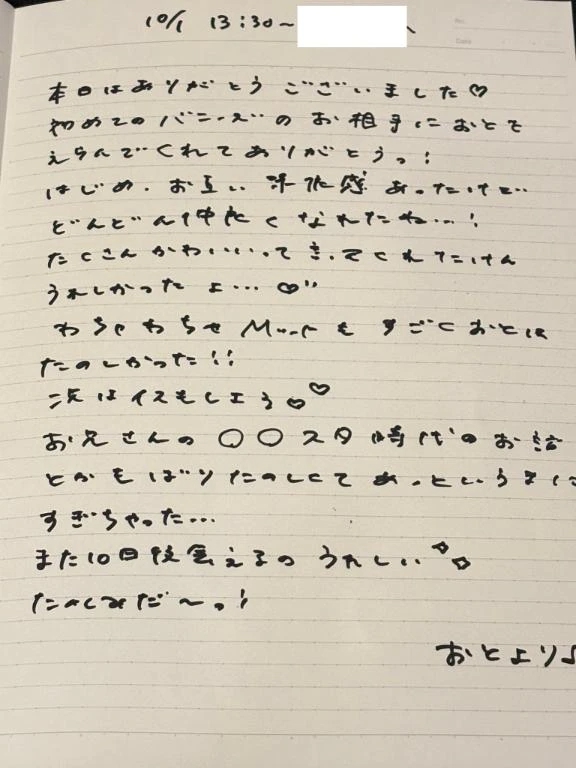 10/1 13:30〜
No.
Date
本日はありがとうございました♡
初めてのバニーズのお相手におとを
えらんでくれてありがとうっ!
はじめ、お互い 感あったけど…
どんどん仲良くなれたね…!
たくさんかわいいって言ってくれたけん
うれしかったよ…♡"
わちゃわちゃ もすごくおとは
たのしかった!!
次はイスもしよう♡♡
お兄さんの〇〇スタ時代のお話
とかもばりたのしくてあっというまに
すぎちゃった…
また10日後会えるのうれしい
たのしみだ〜っ!
おとより♪